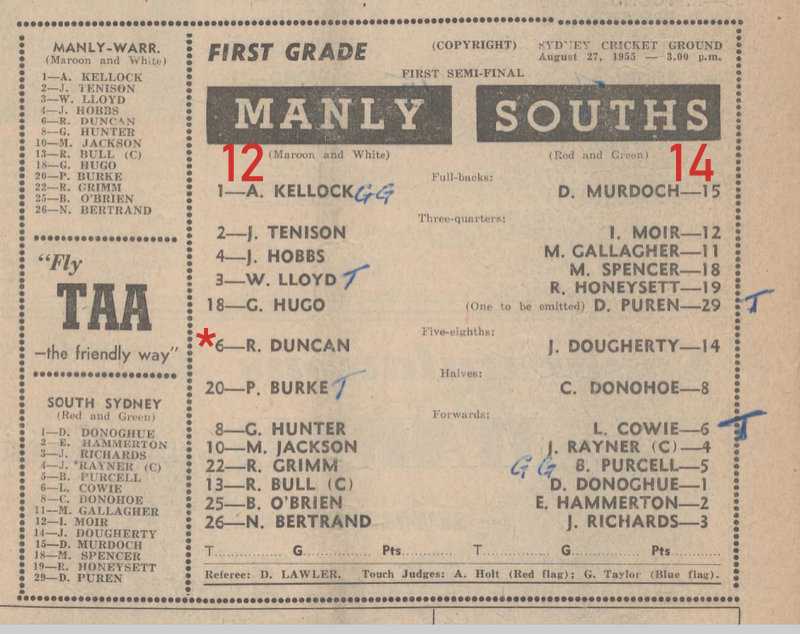 MANLY-WARR.
(Maroon and White)
1—A. KELLOCK
2—J. TENISON
3—W. LLOYD
4—J. HOBBS
6—R. DUNCAN
8—G. HUNTER
10—M. JACKSON
13—R. BULL (C)
18—G. HUGO
20—P. BURKE
22—R. GRIMM
25—B. O'BRIEN
26—N. BERTRAND
"Fly
TAA
—the friendly way"
SOUTH SYDNEY
(Red and Green)
1—D. DONOGHUE
2—E. HAMMERTON
3—J. RICHARDS
4—J. RAYNER (C)
5—B. PURCELL
6—L. COWIE
8—C. DONOHOE
11—M. GALLAGHER
12—I. MOIR
14—J. DOUGHERTY
15—D. MURDOCH
18—M. SPENCER
19—R. HONEYSETT
29—D. PUREN
FIRST GRADE (COPYRIGHT) SYDNEY CRICKET GROUND
August 27, 1955 — 3.00 p.m.
FIRST SEMI-FINAL
MANLY SOUTHS
12 (Maroon and White) (Red and Green) 14
Full-backs:
1—A. KELLOCK GG D. MURDOCH—15
Three-quarters:
2—J. TENISON I. MOIR—12
4—J. HOBBS M. GALLAGHER—11
3—W. LLOYD T M. SPENCER—18
R. HONEYSETT—19
18—G. HUGO (One to be omitted) D. PUREN—29 T
Five-eighths:
*6—R. DUNCAN J. DOUGHERTY—14
Halves:
20—P. BURKE T C. DONOHOE—8
Forwards:
8—G. HUNTER L. COWIE—6 T
10—M. JACKSON J. RAYNER (C)—4
22—R. GRIMM GG B. PURCELL—5
13—R. BULL (C) D. DONOGHUE—1
25—B. O'BRIEN E. HAMMERTON—2
26—N. BERTRAND J. RICHARDS—3
T............ G............ Pts.......... T............ G............ Pts..........
Referee: D. LAWLER. Touch Judges: A. Holt (Red flag); G. Taylor (Blue flag).